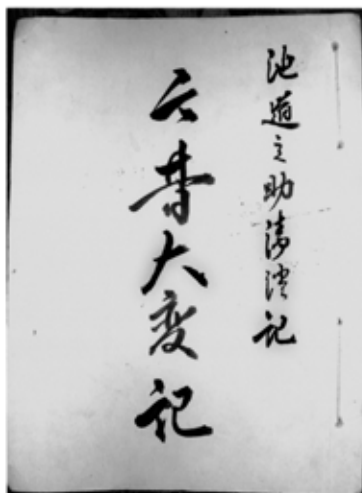 池道之助清澄記
今昔大変記